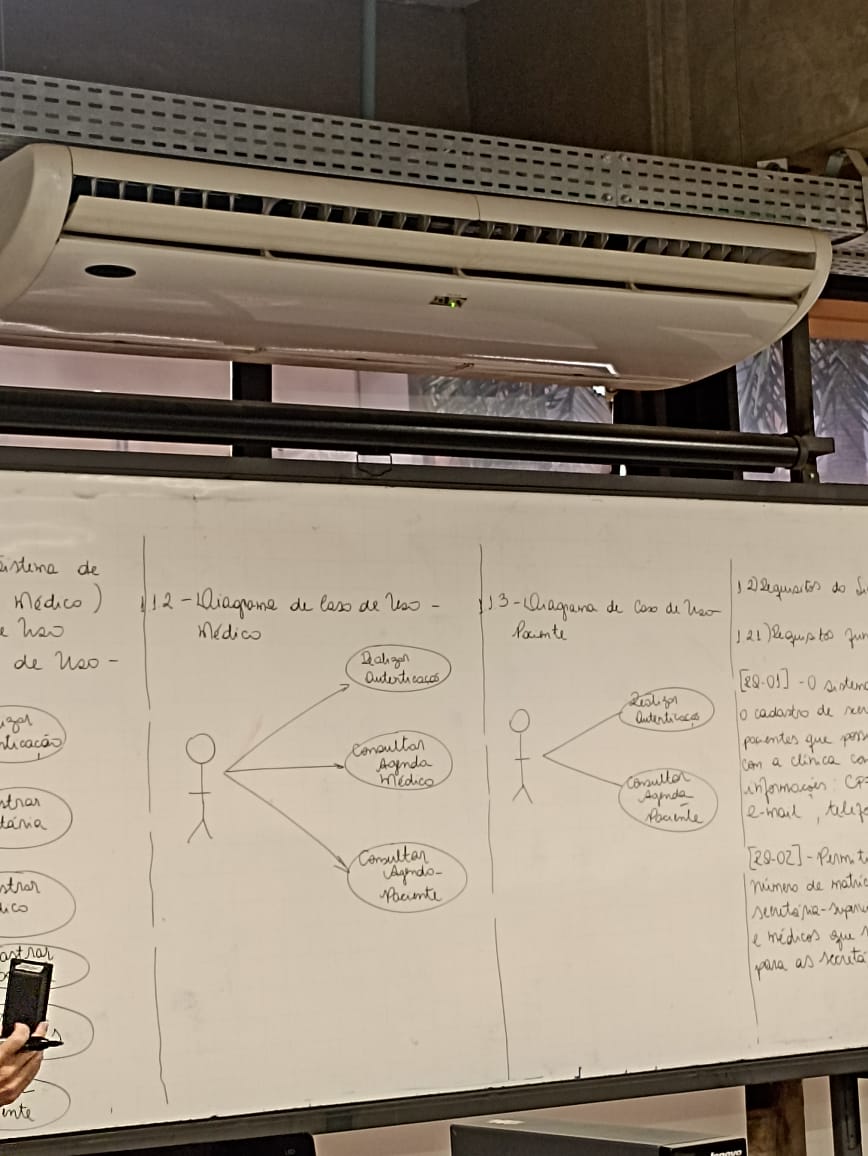 sistema de
Médico)
e Uso
de Uso -
izar
nticação
strar
tária
strar
dico
astrar
ente
1.2 - Diagrama de Caso de Uso -
Médico
Realizar
Autenticação
Consultar
Agenda
Médico
Consultar
Agenda-
Paciente
1.3 - Diagrama de Caso de Uso
Paciente
Realizar
Autenticação
Consultar
Agenda-
Paciente
1.2) Requisitos do Si
1.2.1) Requisitos fun
[RQ-01] - O sistema
o cadastro de
pacientes que poss
com a clínica co
informações: CPF
e-mail, telef
[RQ-02] - Permit
número de matríc
secretária-super
e médicos que
para as secretá
lenovo